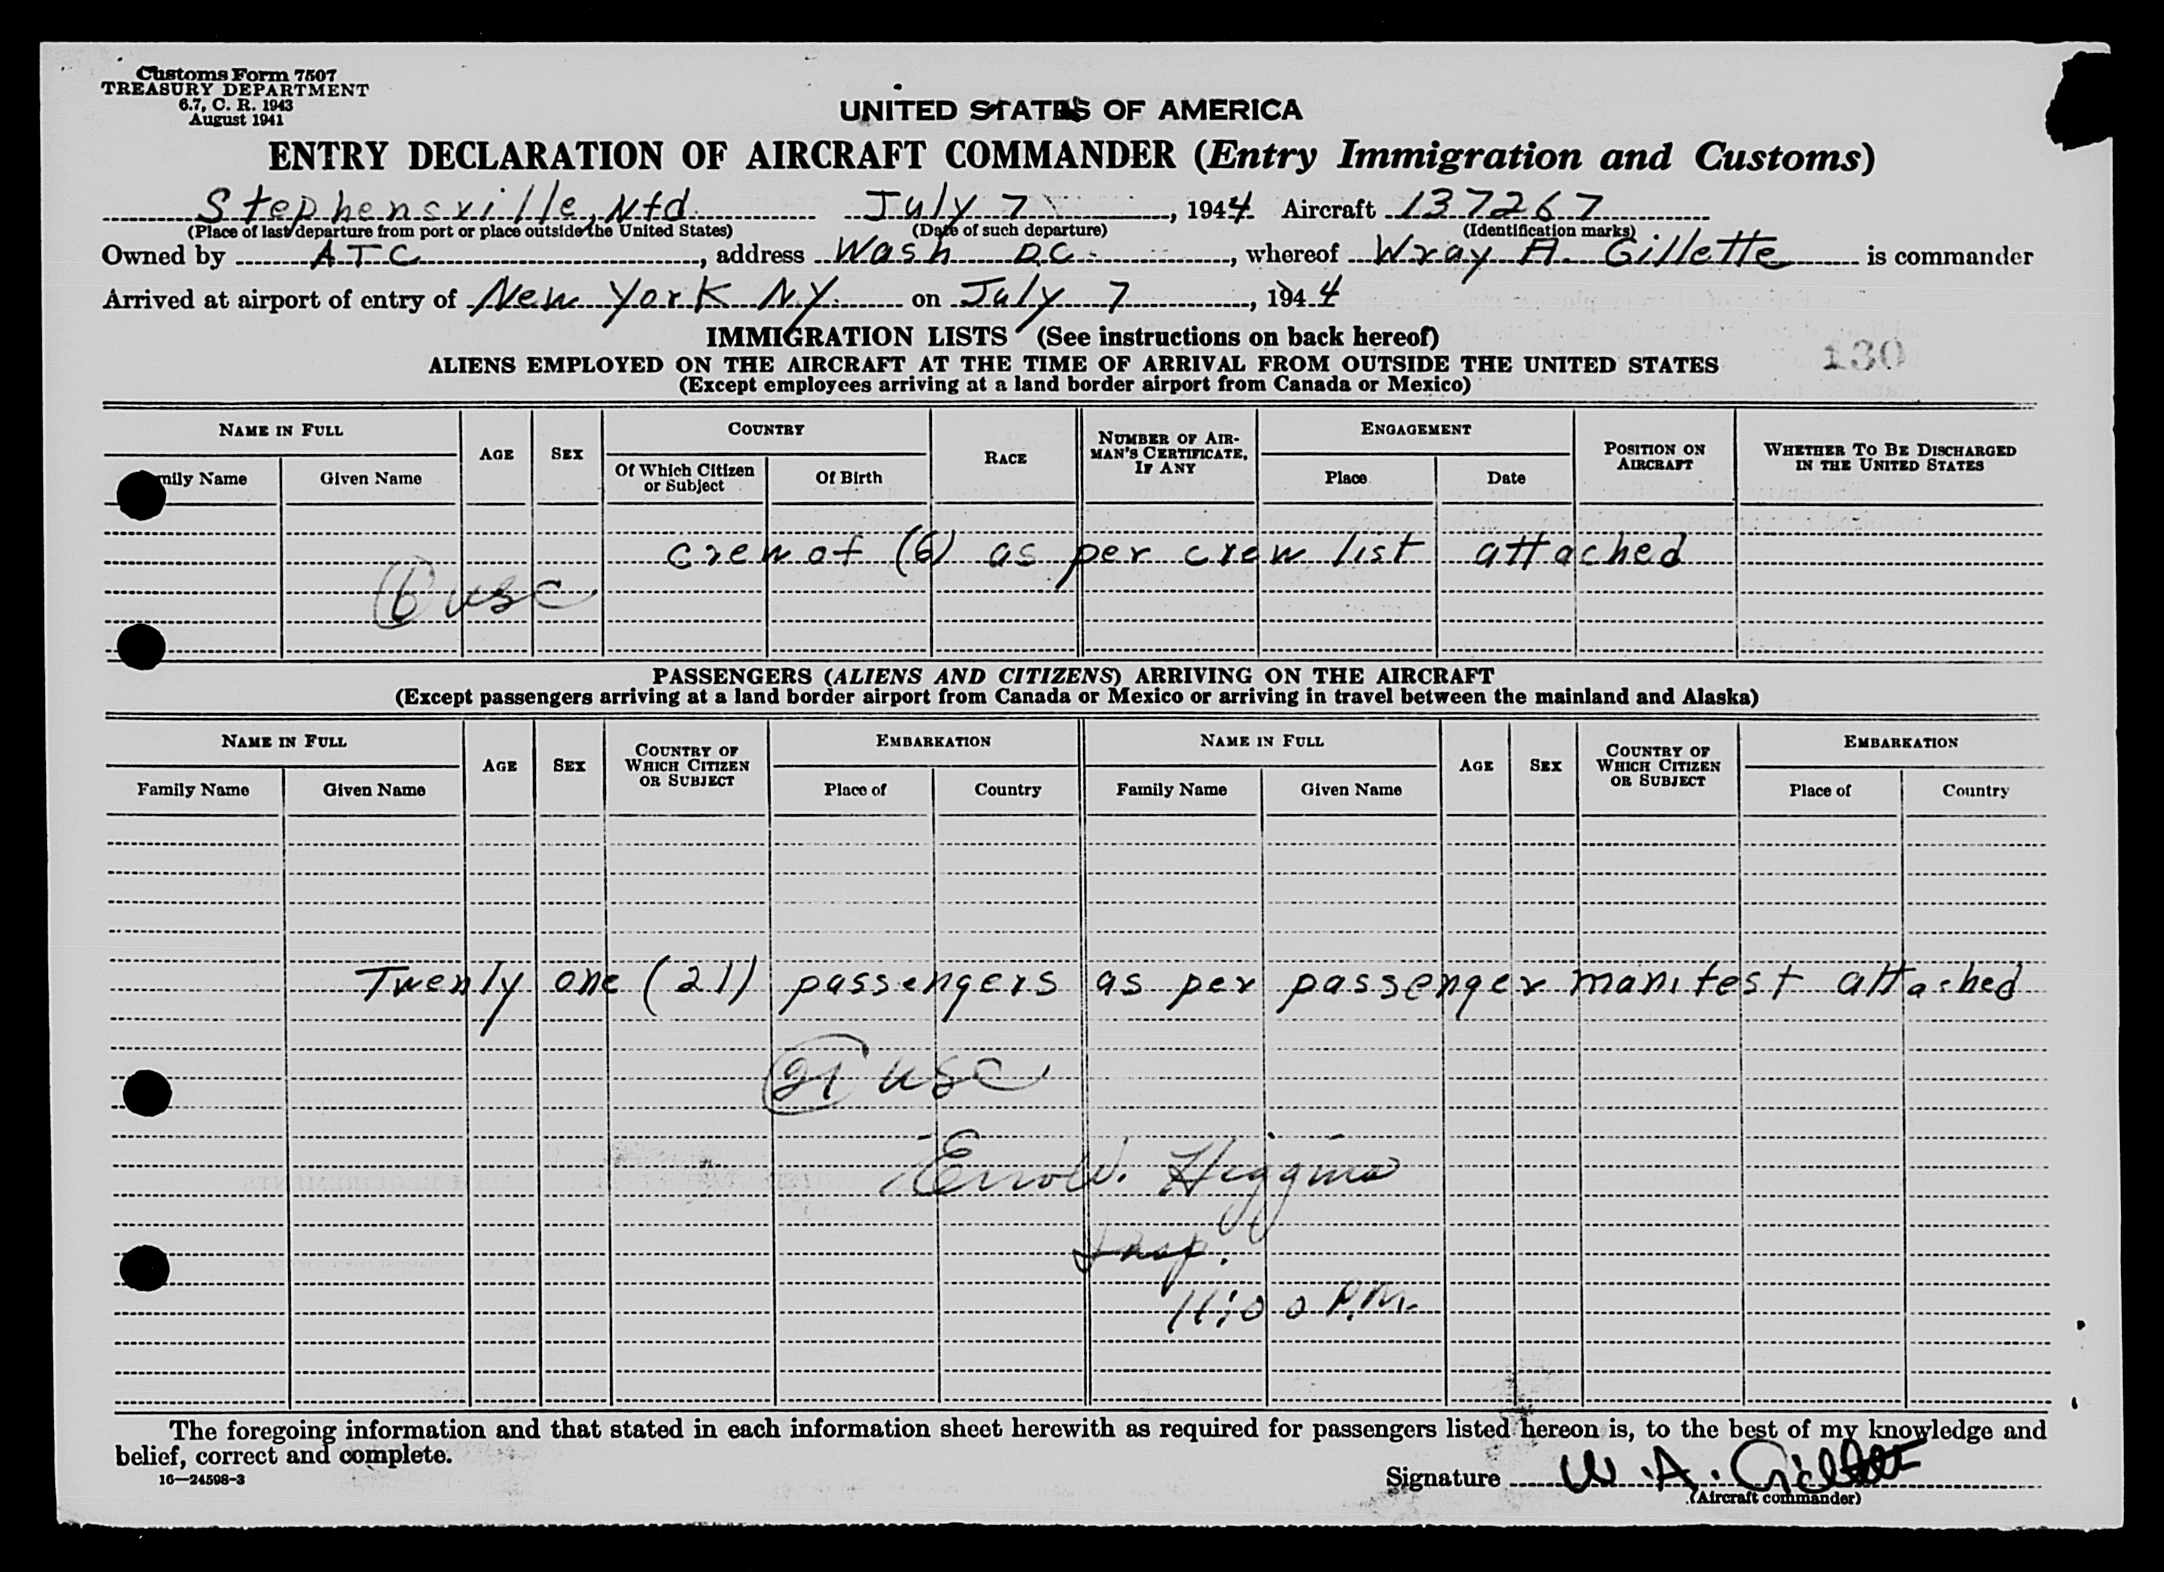 Customs Form 7507
TREASURY DEPARTMENT
6.7, C. R. 1943
August 1941
UNITED STATES OF AMERICA
ENTRY DECLARATION OF AIRCRAFT COMMANDER (Entry Immigration and Customs)
Stephensville, Nfd. July 7, 1944 Aircraft 137267
(Place of last departure from port or place outside the United States) (Date of such departure) (Identification marks)
Owned by ATC, address Wash D.C., whereof Wray A. Gillette is commander
Arrived at airport of entry of New York N.Y. on July 7, 1944
IMMIGRATION LISTS (See instructions on back hereof)
130
ALIENS EMPLOYED ON THE AIRCRAFT AT THE TIME OF ARRIVAL FROM OUTSIDE THE UNITED STATES
(Except employees arriving at a land border airport from Canada or Mexico)
NAME IN FULL AGE SEX COUNTRY RACE NUMBER OF AIRMAN'S CERTIFICATE, IF ANY ENGAGEMENT POSITION ON AIRCRAFT WHETHER TO BE DISCHARGED IN THE UNITED STATES
mily Name Given Name Of Which Citizen or Subject Of Birth Place Date
crew of (6) as per crew list attached
6 USC
PASSENGERS (ALIENS AND CITIZENS) ARRIVING ON THE AIRCRAFT
(Except passengers arriving at a land border airport from Canada or Mexico or arriving in travel between the mainland and Alaska)
NAME IN FULL AGE SEX COUNTRY OF WHICH CITIZEN OR SUBJECT EMBARKATION NAME IN FULL AGE SEX COUNTRY OF WHICH CITIZEN OR SUBJECT EMBARKATION
Family Name Given Name Place of Country Family Name Given Name Place of Country
Twenty one (21) passengers as per passenger manifest attached
21 USC
Higgins
Insp.
11:00 P.M.
The foregoing information and that stated in each information sheet herewith as required for passengers listed hereon is, to the best of my knowledge and
belief, correct and complete.
16—24598-3
Signature W. A. Gillette
(Aircraft commander)